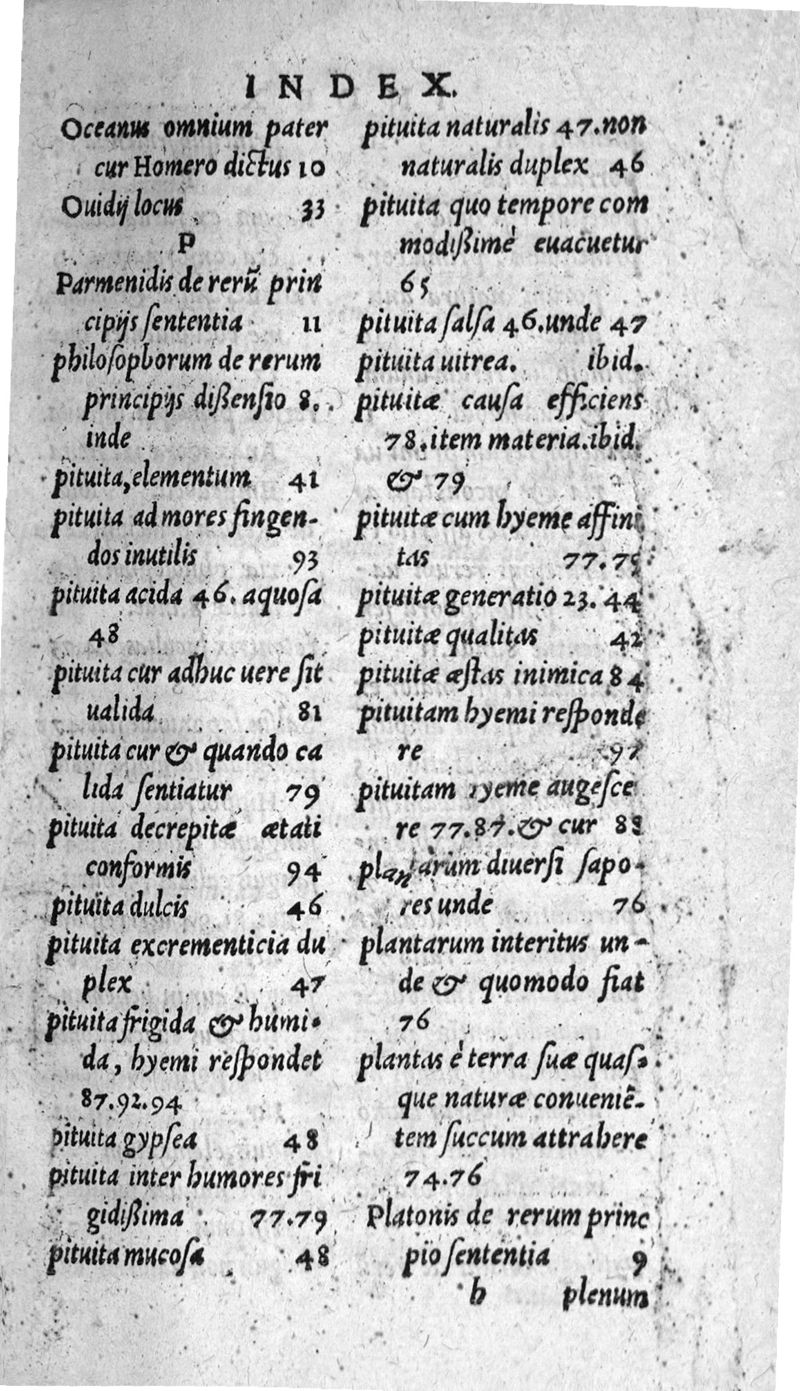 INDEX.
Oceanus omnium pater
cur Homero dictus 10
Ouidij locus 33
P
Parmenidis de rerũ prin
cipijs ſententia 11
philoſophorum de rerum
principijs diſſenſio 8.
inde
pituita, elementum 41
pituita ad mores fingen-
dos inutilis 93
pituita acida 46. aquoſa
48
pituita cur adhuc uere ſit
ualida 81
pituita cur & quando ca
lida ſentiatur 79
pituita decrepitæ ætati
conformis 94
pituita dulcis 46
pituita excrementicia du
plex 47
pituita frigida & humi-
da, hyemi reſpondet
87.92.94
pituita gypſea 48
pituita inter humores fri
gidiſſima 77.79
pituita mucoſa 48
pituita naturalis 47. non
naturalis duplex 46
pituita quo tempore com
modiſſimè euacuetur
65
pituita ſalſa 46. unde 47
pituita uitrea. ibid.
pituitæ cauſa efficiens
78. item materia. ibid.
& 79
pituitæ cum hyeme affini
tas 77.75
pituitæ generatio 23. 44
pituitæ qualitas 42
pituitæ æſtas inimica 84
pituitam hyemi reſponde
re
pituitam hyeme augeſce
re 77.87. & cur 88
plantarum diuerſi ſapo-
res unde 76
plantarum interitus un-
de & quomodo fiat
76
plantas è terra ſuæ quaſ-
que naturæ conueniẽ-
tem ſuccum attrahere
74.76
Platonis de rerum princ
pio ſententia 9
b plenum